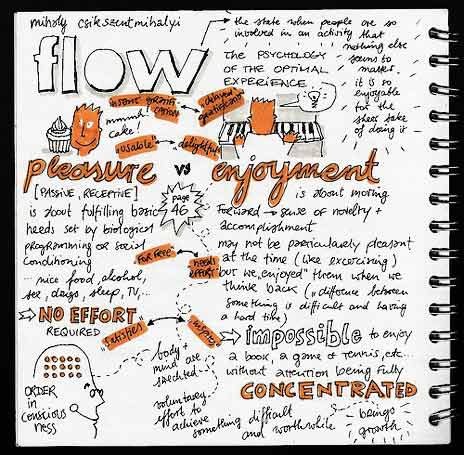 mihaly csikszentmihalyi
flow
the state when people are so
involved in an activity that
nothing else
seems to
matter.
it is so
enjoyable
for the
sheer sake
of doing it
THE PSYCHOLOGY
OF THE OPTIMAL
EXPERIENCE
instant gratifi-
cation
delayed
gratification
mmm!
cake!
"usable"
delightful
pleasure vs enjoyment
[PASSIVE, RECEPTIVE]
is about fulfilling basic
needs set by biological
programming or social
conditioning
... nice food, alcohol,
sex, drugs, sleep, TV,...
→ NO EFFORT
REQUIRED
page
46
is about moving
forward → sense of novelty +
accomplishment
may not be particularly pleasant
at the time (like excercising)
but we „enjoyed" them when we
think back („difference between
something is difficult and having
a hard time)
FOR FREE
needs
EFFORT
"satisfies"
inspires
→ impossible to enjoy
a book, a game of tennis, etc...
without attention being fully
CONCENTRATED
ORDER
in
conscious
ness
body +
mind are
stretched
voluntary
effort to
achieve
something difficult
and worthwhile
brings
growth